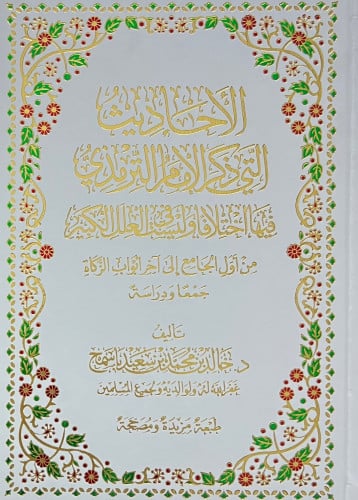 الأحاديث
التي ذكر الإمام الترمذي
فيها اختلافا وليست في العلل الكبير
من أول الجامع إلى آخر أبواب الزكاة
جمعا ودراسة
تأليف
د. خالد بن محمد بن سعيد باسمح
غفر الله له ولوالديه وجميع المسلمين
طبعة مزيدة ومصححة